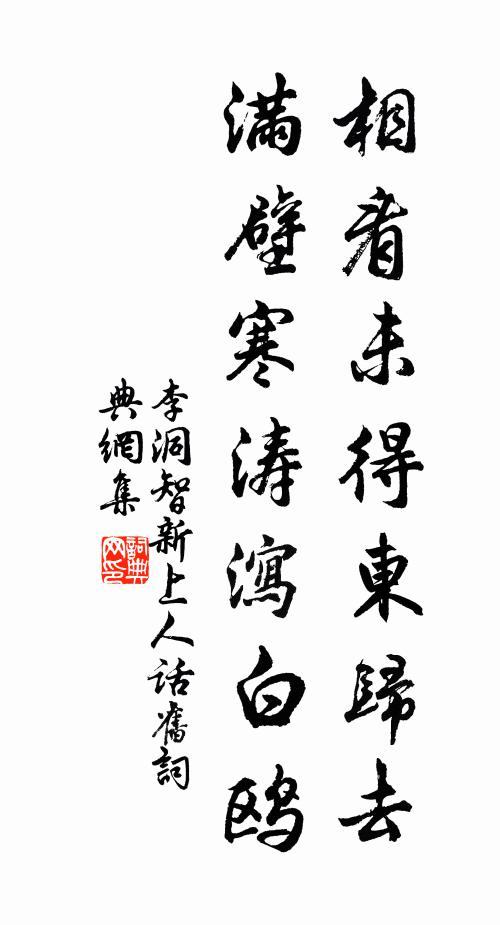 相看未得東歸去
滿壁寒濤瀉白鷗
李洞智新上人話舊詞
典網集
詞典
网印